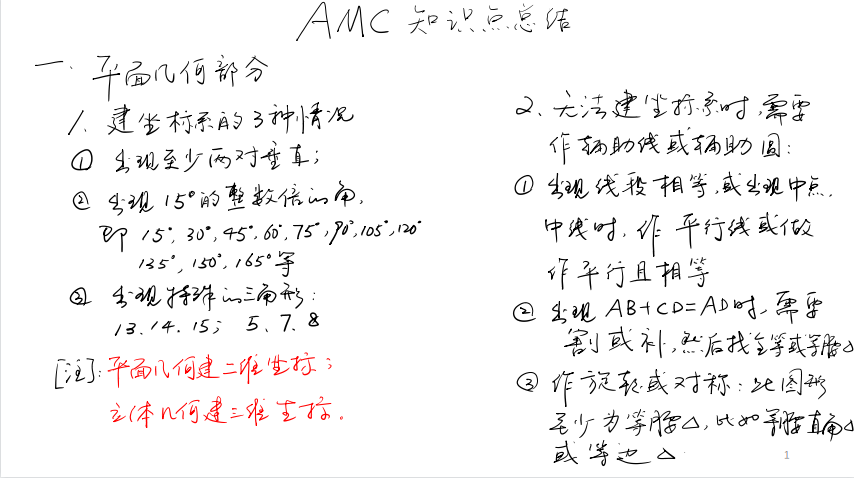 AMC 知识点总结
一. 平面几何部分
1. 建坐标系的3种情况
① 出现至少两对垂直;
② 出现15°的整数倍的角,
即 15°, 30°, 45°, 60°, 75°, 90°, 105°, 120°
135°, 150°, 165°等
③ 出现特殊的三角形:
13. 14. 15; 5. 7. 8
[注]: 平面几何建二维坐标;
立体几何建三维坐标.
2. 无法建坐标系时,需要
作辅助线或辅助圆:
① 出现线段相等,或出现中点.
中线时, 作 平行线或做
作平行且相等
② 出现 AB+CD=AD时, 需要
割或补, 然后找全等或等腰△
③ 作旋转或对称: 此图形
至少为等腰△, 比如等腰直角△
或 等边 △
1